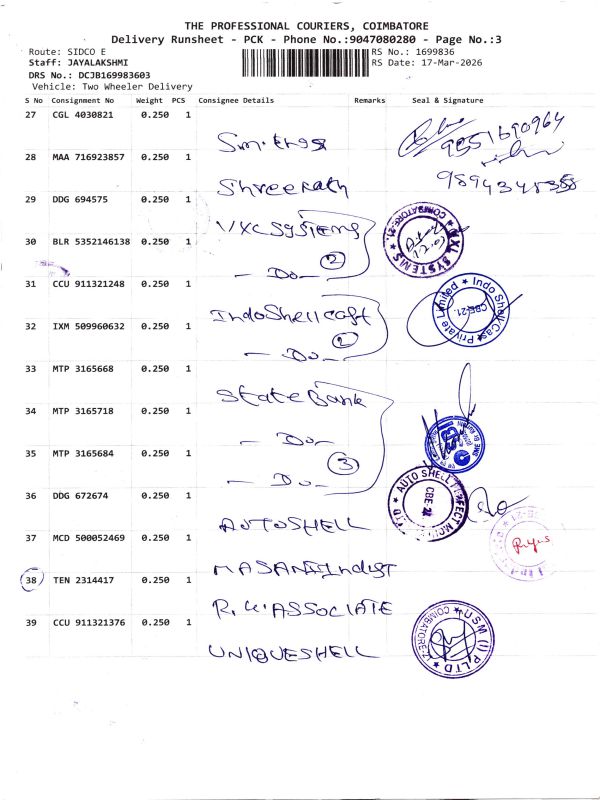 THE PROFESSIONAL COURIERS, COIMBATORE
Delivery Runsheet - PCK - Phone No.:9047080280 - Page No.:3
Route: SIDCO E
RS No.: 1699836
Staff: JAYALAKSHMI
RS Date: 17-Mar-2026
DRS No.: DCJB169983603
Vehicle: Two Wheeler Delivery
S No Consignment No Weight PCS Consignee Details Remarks Seal & Signature
27 CGL 4030821 0.250 1
9551690964
28 MAA 716923857 0.250 1
Shreerath
29 DDG 694575 0.250 1
VXL Systems
VXL SYSTEMS ★ COIMBATORE-21. ★
30 BLR 5352146138 0.250 1
2
— Do —
31 CCU 911321248 0.250 1
IndoShellcast
Indo Shell Cast Private Limited ★ CBE-21. ★
32 IXM 509960632 0.250 1
2
— Do —
33 MTP 3165668 0.250 1
State Bank
34 MTP 3165718 0.250 1
— Do —
35 MTP 3165684 0.250 1
3
— Do —
36 DDG 672674 0.250 1
AUTOSHELL
AUTO SHELL PERFECT
CBE-21
37 MCD 500052469 0.250 1
38 TEN 2314417 0.250 1
R.K. ASSOCIATE
39 CCU 911321376 0.250 1
UNIQUESHELL
USM (I) P LTD ★ COIMBATORE-21 ★